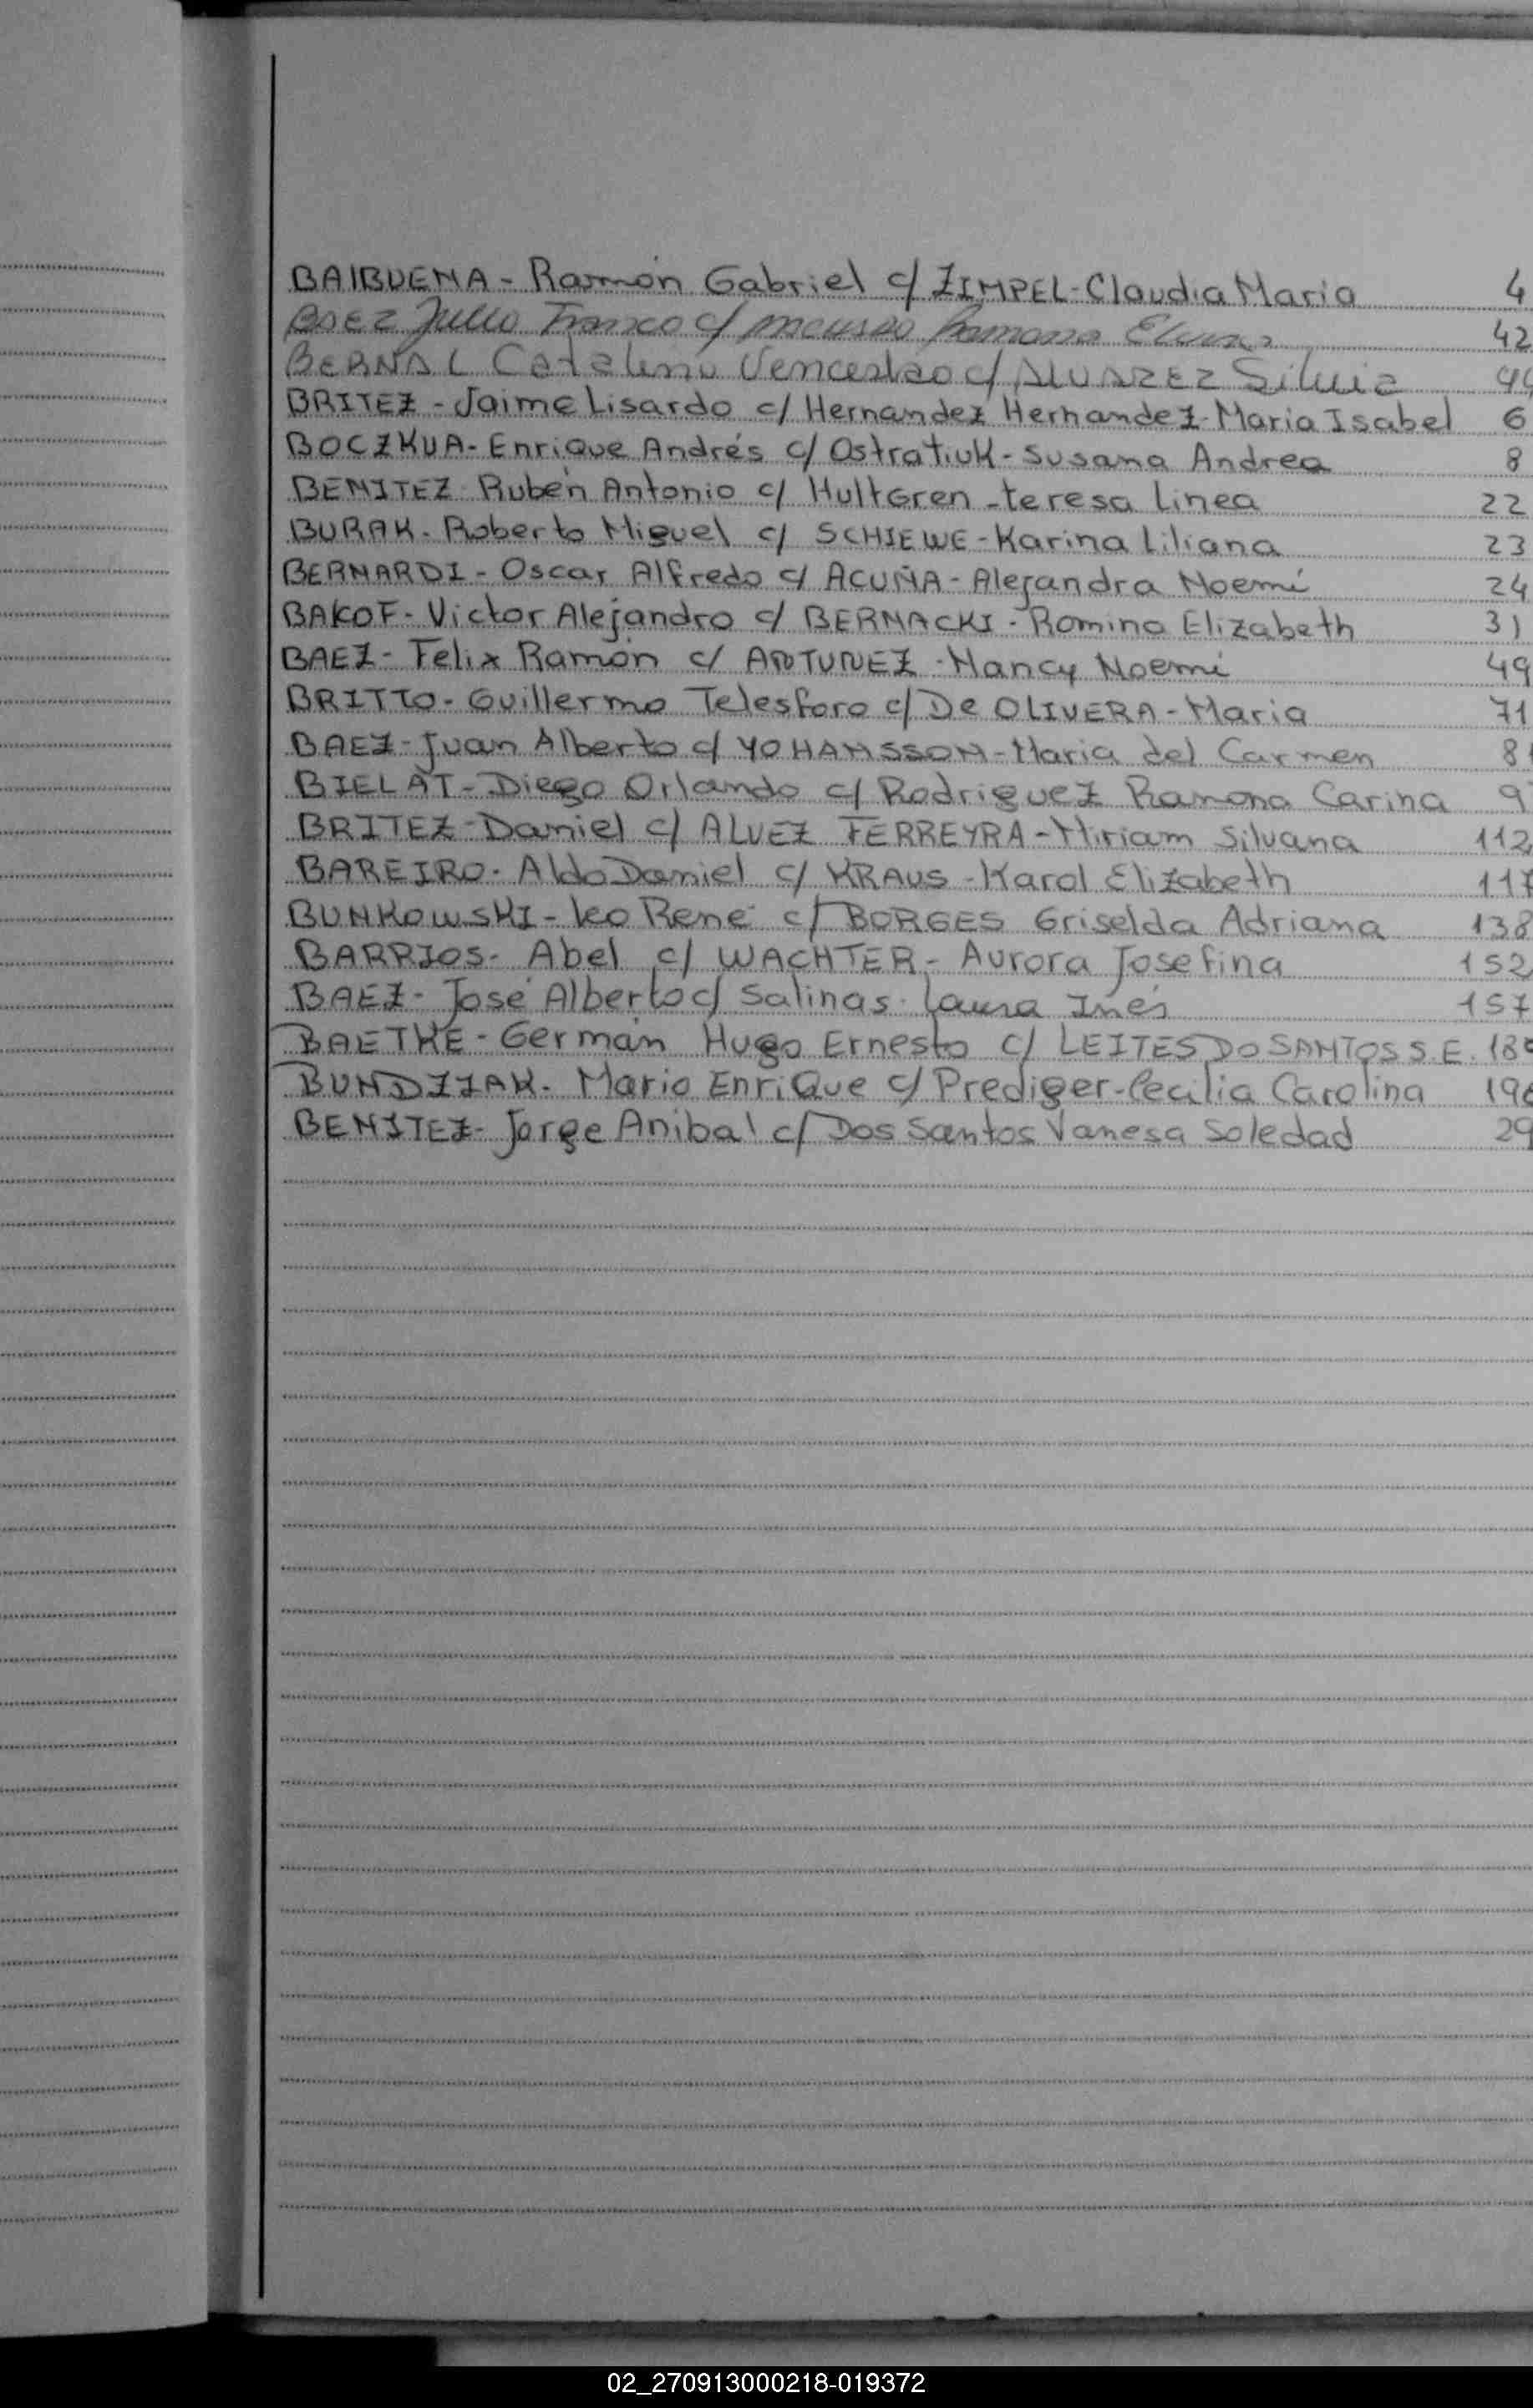 BAIBUENA - Ramón Gabriel c/ ZIMPEL - Claudia Maria 4
BAEZ Julio Franco c/ Ramona 42
BERNAL Catalino Venceslao c/ ALVAREZ Silvia
BRITEZ - Jaime Lisardo c/ Hernandez Hernandez - Maria Isabel 6
BOCZKUA - Enrique Andrés c/ Ostratiuk - Susana Andrea 8
BENITEZ Rubén Antonio c/ Hultgren - teresa Linea 22
BURAK - Roberto Miguel c/ SCHIEWE - Karina Liliana 23
BERNARDI - Oscar Alfredo c/ ACUÑA - Alejandra Noemí 24
BAKOF - Victor Alejandro c/ BERNACKI - Romina Elizabeth 31
BAEZ - Felix Ramón c/ ANTUNEZ - Nancy Noemí 49
BRITTO - Guillermo Telesforo c/ De OLIVERA - Maria 71
BAEZ - Juan Alberto c/ YOHANSSON - Maria del Carmen
BIELAT - Diego Orlando c/ Rodriguez Ramona Carina
BRITEZ - Daniel c/ ALVEZ FERREYRA - Miriam Silvana 112
BAREIRO - Aldo Daniel c/ KRAUS - Karol Elizabeth 117
BUNKOWSKI - Leo René c/ BORGES Griselda Adriana 138
BARRIOS - Abel c/ WACHTER - Aurora Josefina 152
BAEZ - José Alberto c/ Salinas - Laura Inés 157
BAETKE - Germán Hugo Ernesto c/ LEITES DO SANTOS S. E.
BUNDZIAK - Mario Enrique c/ Prediger - Cecilia Carolina
BENITEZ - Jorge Anibal c/ Dos Santos Vanesa Soledad
02_270913000218-019372